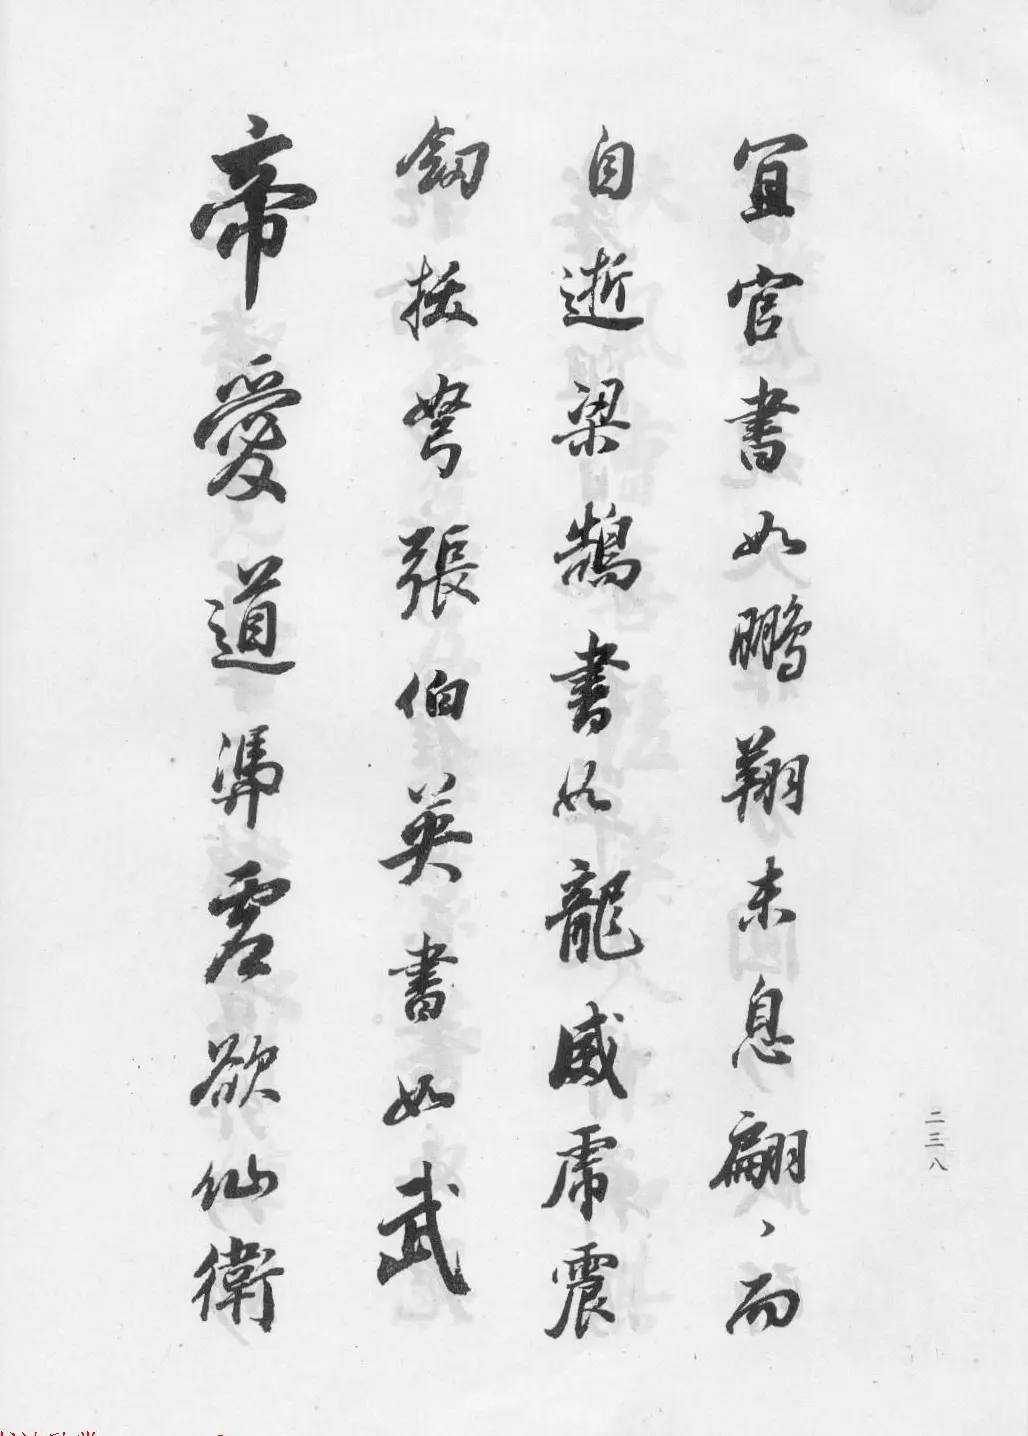 宜官書如鵬翔未息翩、而
自逝梁鵠書如龍威虎震
劒拔弩張伯英書如武
帝愛道憑虛欲仙衛
二三八